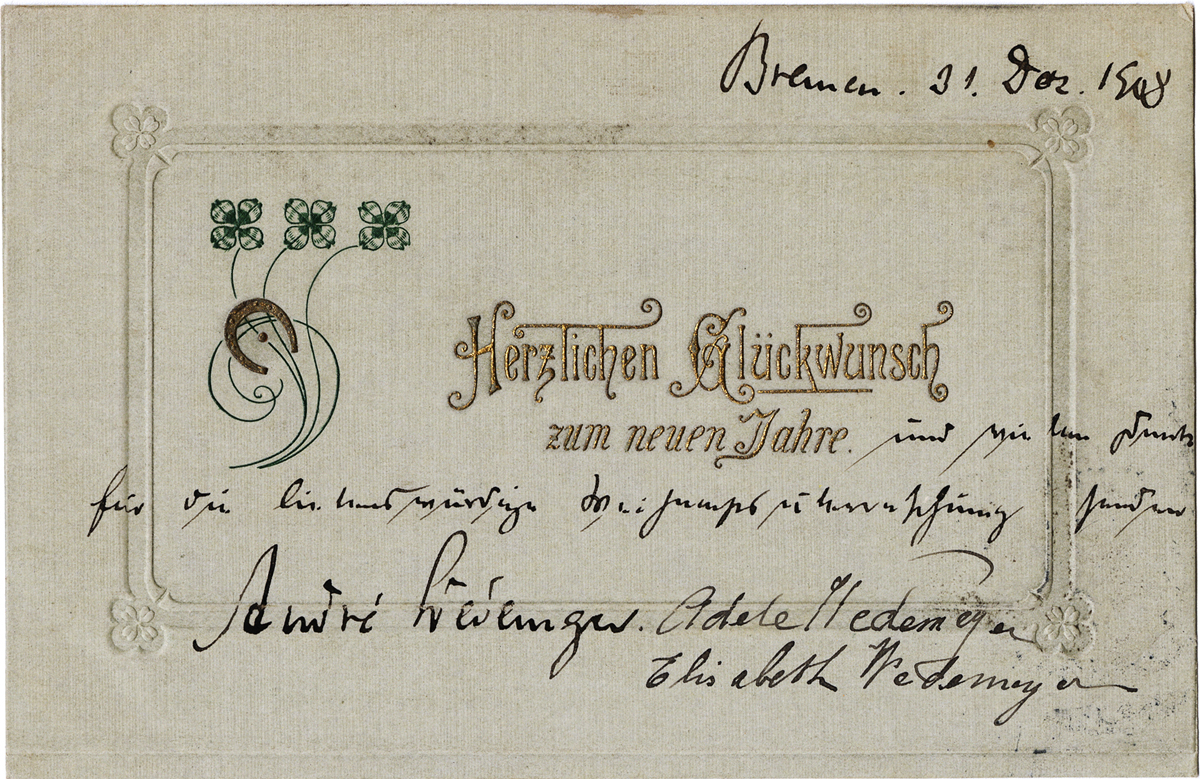 Bremen. 31. Dez. 1908
Herzlichen Glückwunsch
zum neuen Jahre. und vielen Dank
für die liebenswürdige Weihnachtsüberraschung senden
André Adele Wedemeyer
Elisabeth Wedemeyer